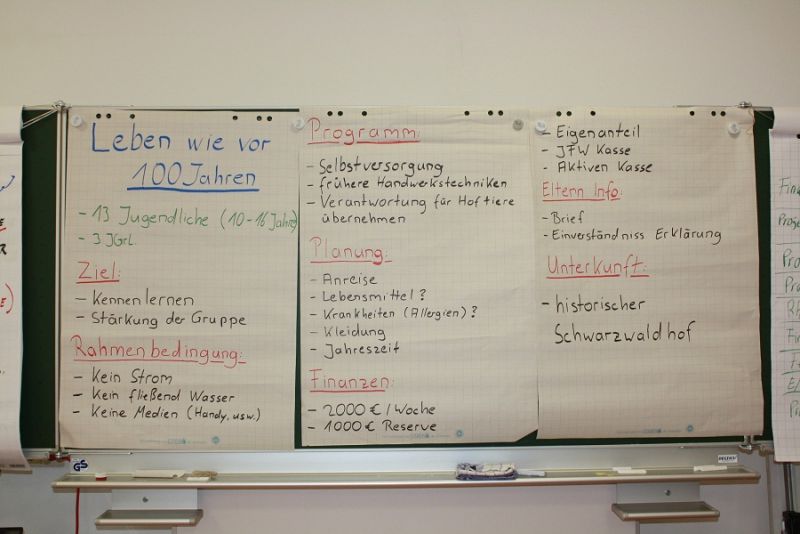 Leben wie vor
100 Jahren
- 13 Jugendliche (10-16 Jahre)
- 3 JGrL.
Ziel:
- Kennenlernen
- Stärkung der Gruppe
Rahmenbedingung:
- Kein Strom
- Kein fließend Wasser
- Keine Medien (Handy, usw.)
Programm:
- Selbstversorgung
- frühere Handwerkstechniken
- Verantwortung für Hoftiere
übernehmen
Planung:
- Anreise
- Lebensmittel?
- Krankheiten (Allergien)?
- Kleidung
- Jahreszeit
Finanzen:
- 2000 € / Woche
- 1000 € Reserve
- Eigenanteil
- JFW Kasse
- Aktiven Kasse
Eltern Info:
- Brief
- Einverständniss Erklärung
Unterkunft:
- historischer
Schwarzwaldhof
GS